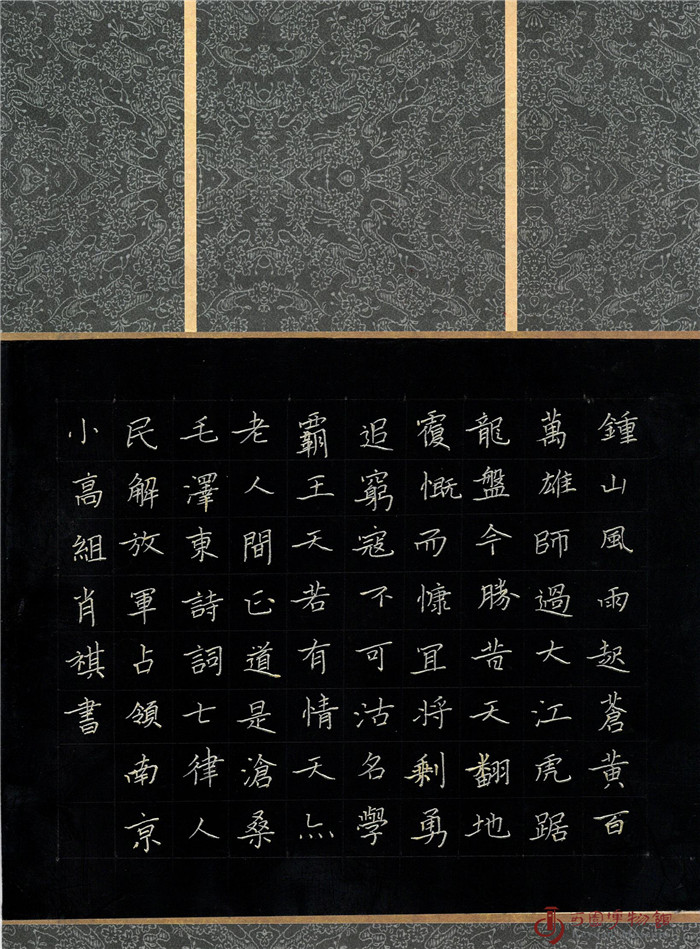 鍾山風雨起蒼黃百
萬雄師過大江虎踞
龍盤今勝昔天翻地
覆慨而慷宜將剩勇
追窮寇不可沽名學
霸王天若有情天亦
老人間正道是滄桑
毛澤東詩詞七律人
民解放軍占領南京
小高組肖祺書
可園博物館